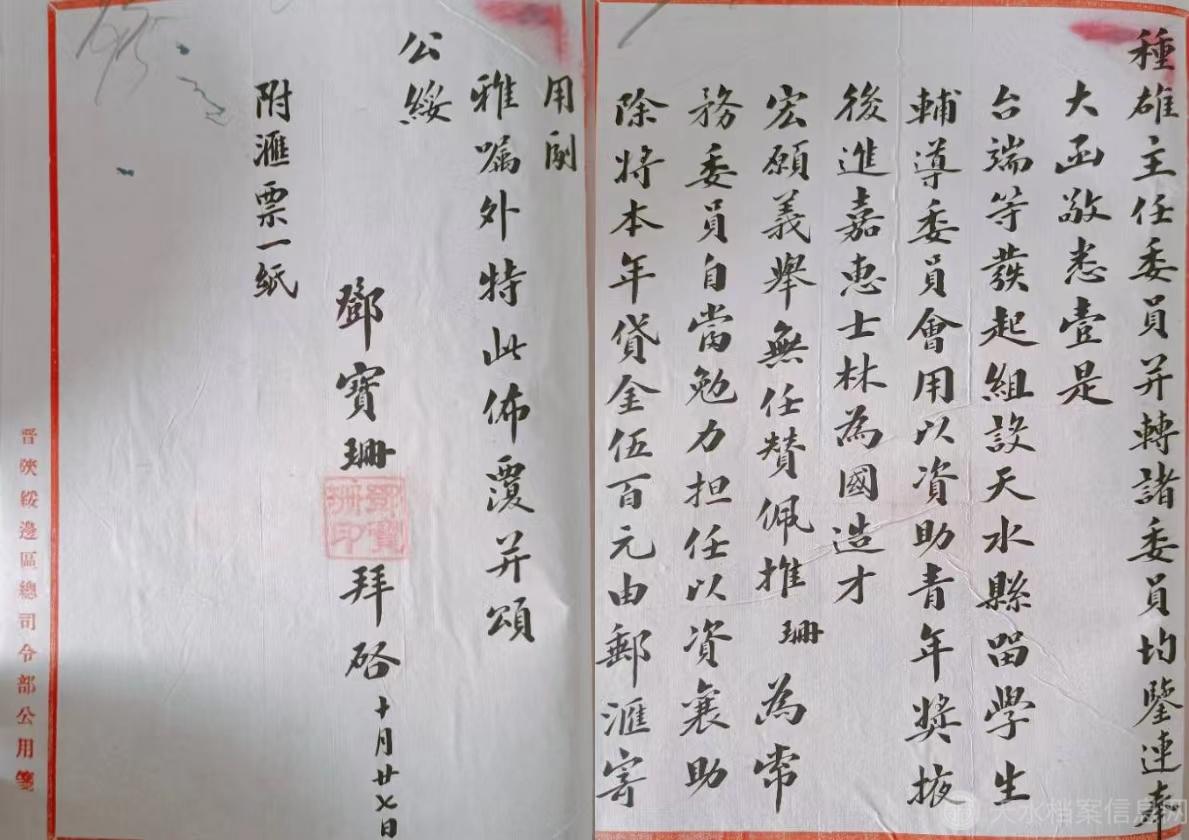 種雄主任委員并轉諸委員均鑒連奉
大函敬悉壹是
台端等發起組設天水縣留學生
輔導委員會用以資助青年獎掖
後進嘉惠士林為國造才
宏願義舉無任贊佩推珊為常
務委員自當勉力担任以資襄助
除將本年貸金伍百元由郵滙寄
用副
雅嘱外特此佈覆并頌
公綏
鄧寶珊拜啓十月廿七日
鄧寶珊印
附滙票一紙
晉陝綏邊區總司令部公用箋
天水档案信息网